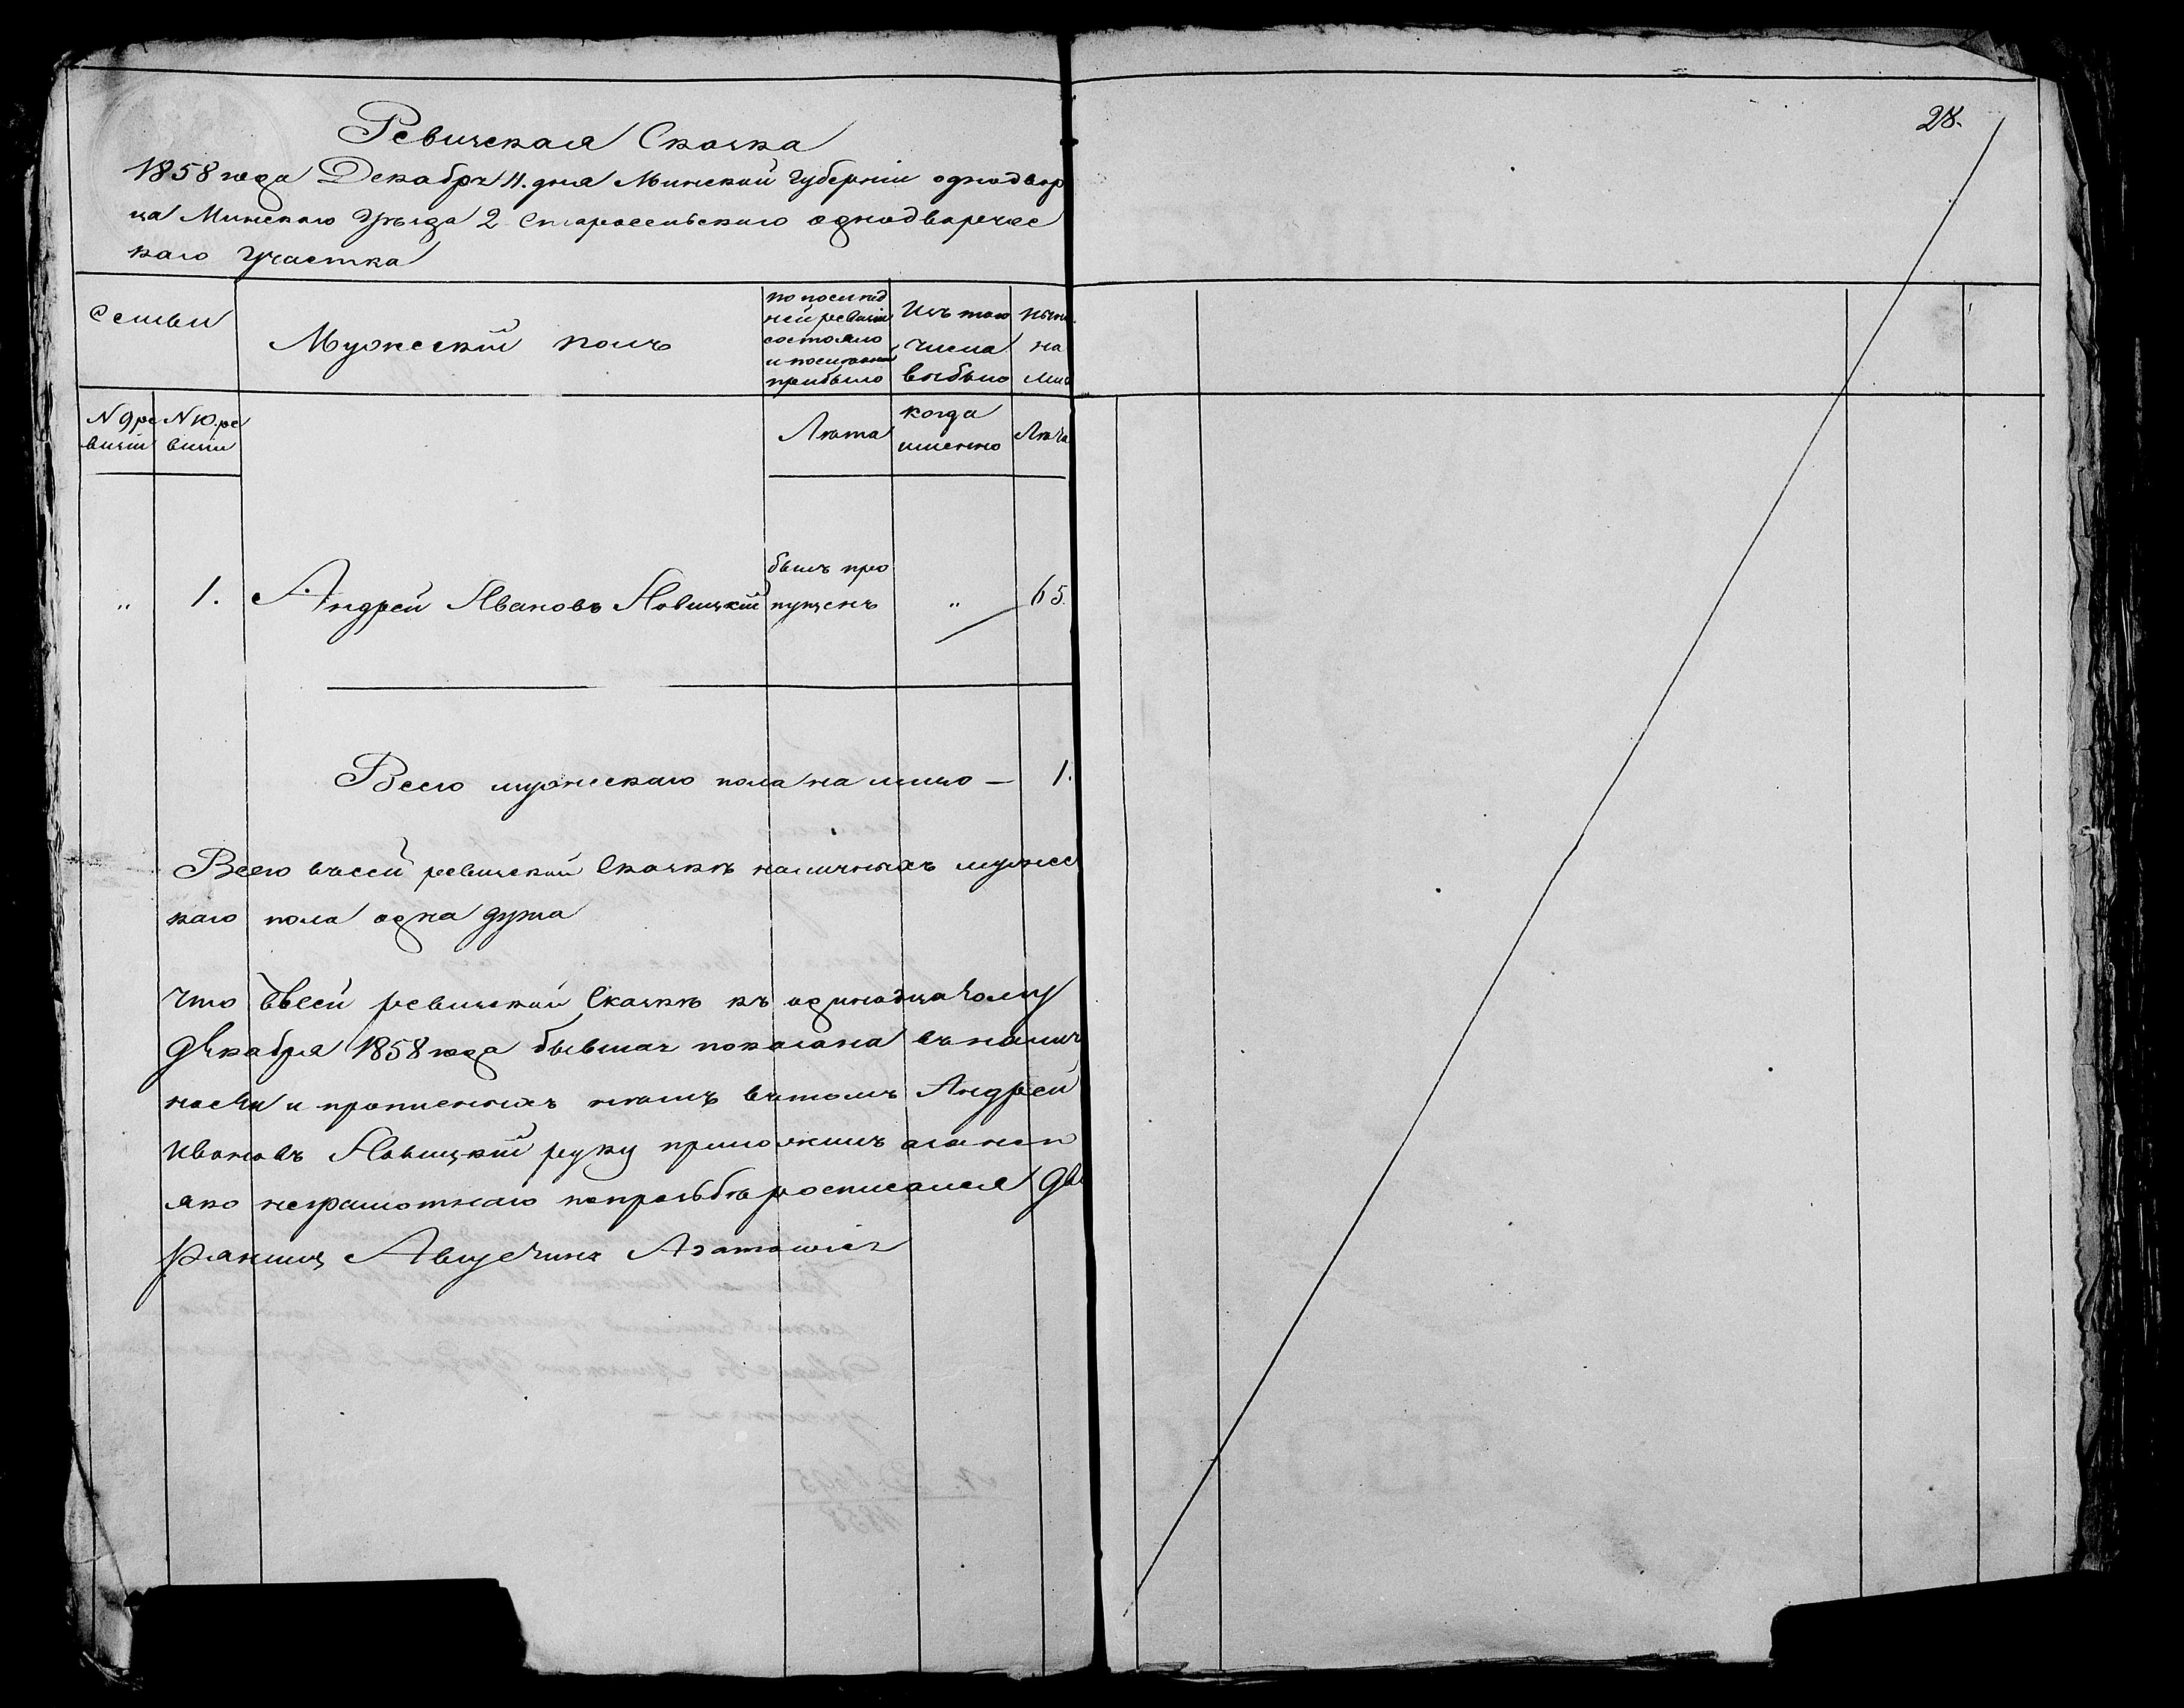 28.
Ревизская Сказка
1858 года Декабря 11. дня Минской Губерніи однодвор
ца Минскаго Уѣзда 2 Старосельскаго однодворчес
каго Участка
Семьи
Мужескій полъ
по послѣд
ней ревизіи
состояло
и послѣ того
прибыло
Изъ того
числа
выбыло
нынѣ
на
лицо
N 9 ре
визіи
N 10. ре
визіи
Лѣта
когда
именно
Лѣта
" 1. Андрей Ивановъ Новицкій
былъ про
пущенъ
" 65.
Всего мужескаго пола на лицо — 1.
Всего въ сей ревизской Сказкѣ наличныхъ мужес
каго пола одна душа
Что въ сей ревизской Сказкѣ къ одинадцатому
Декабря 1858 года бывшая показана въ налич
ности и прописныхъ нѣтъ въ томъ Андрей
Ивановъ Новицкій руку приложилъ а за него
яко неграмотнаго по прозьбѣ росписался Дво
рянинъ Августинъ